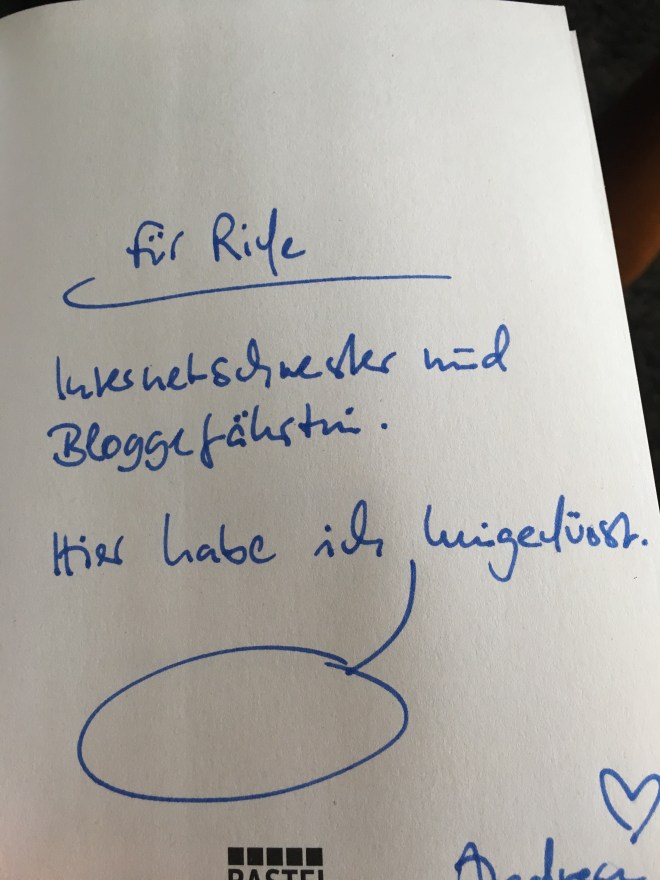 für Rike
Internetschwester und
Bloggefährtin.
Hier habe ich hingeküsst.
Andrea
BASTEI